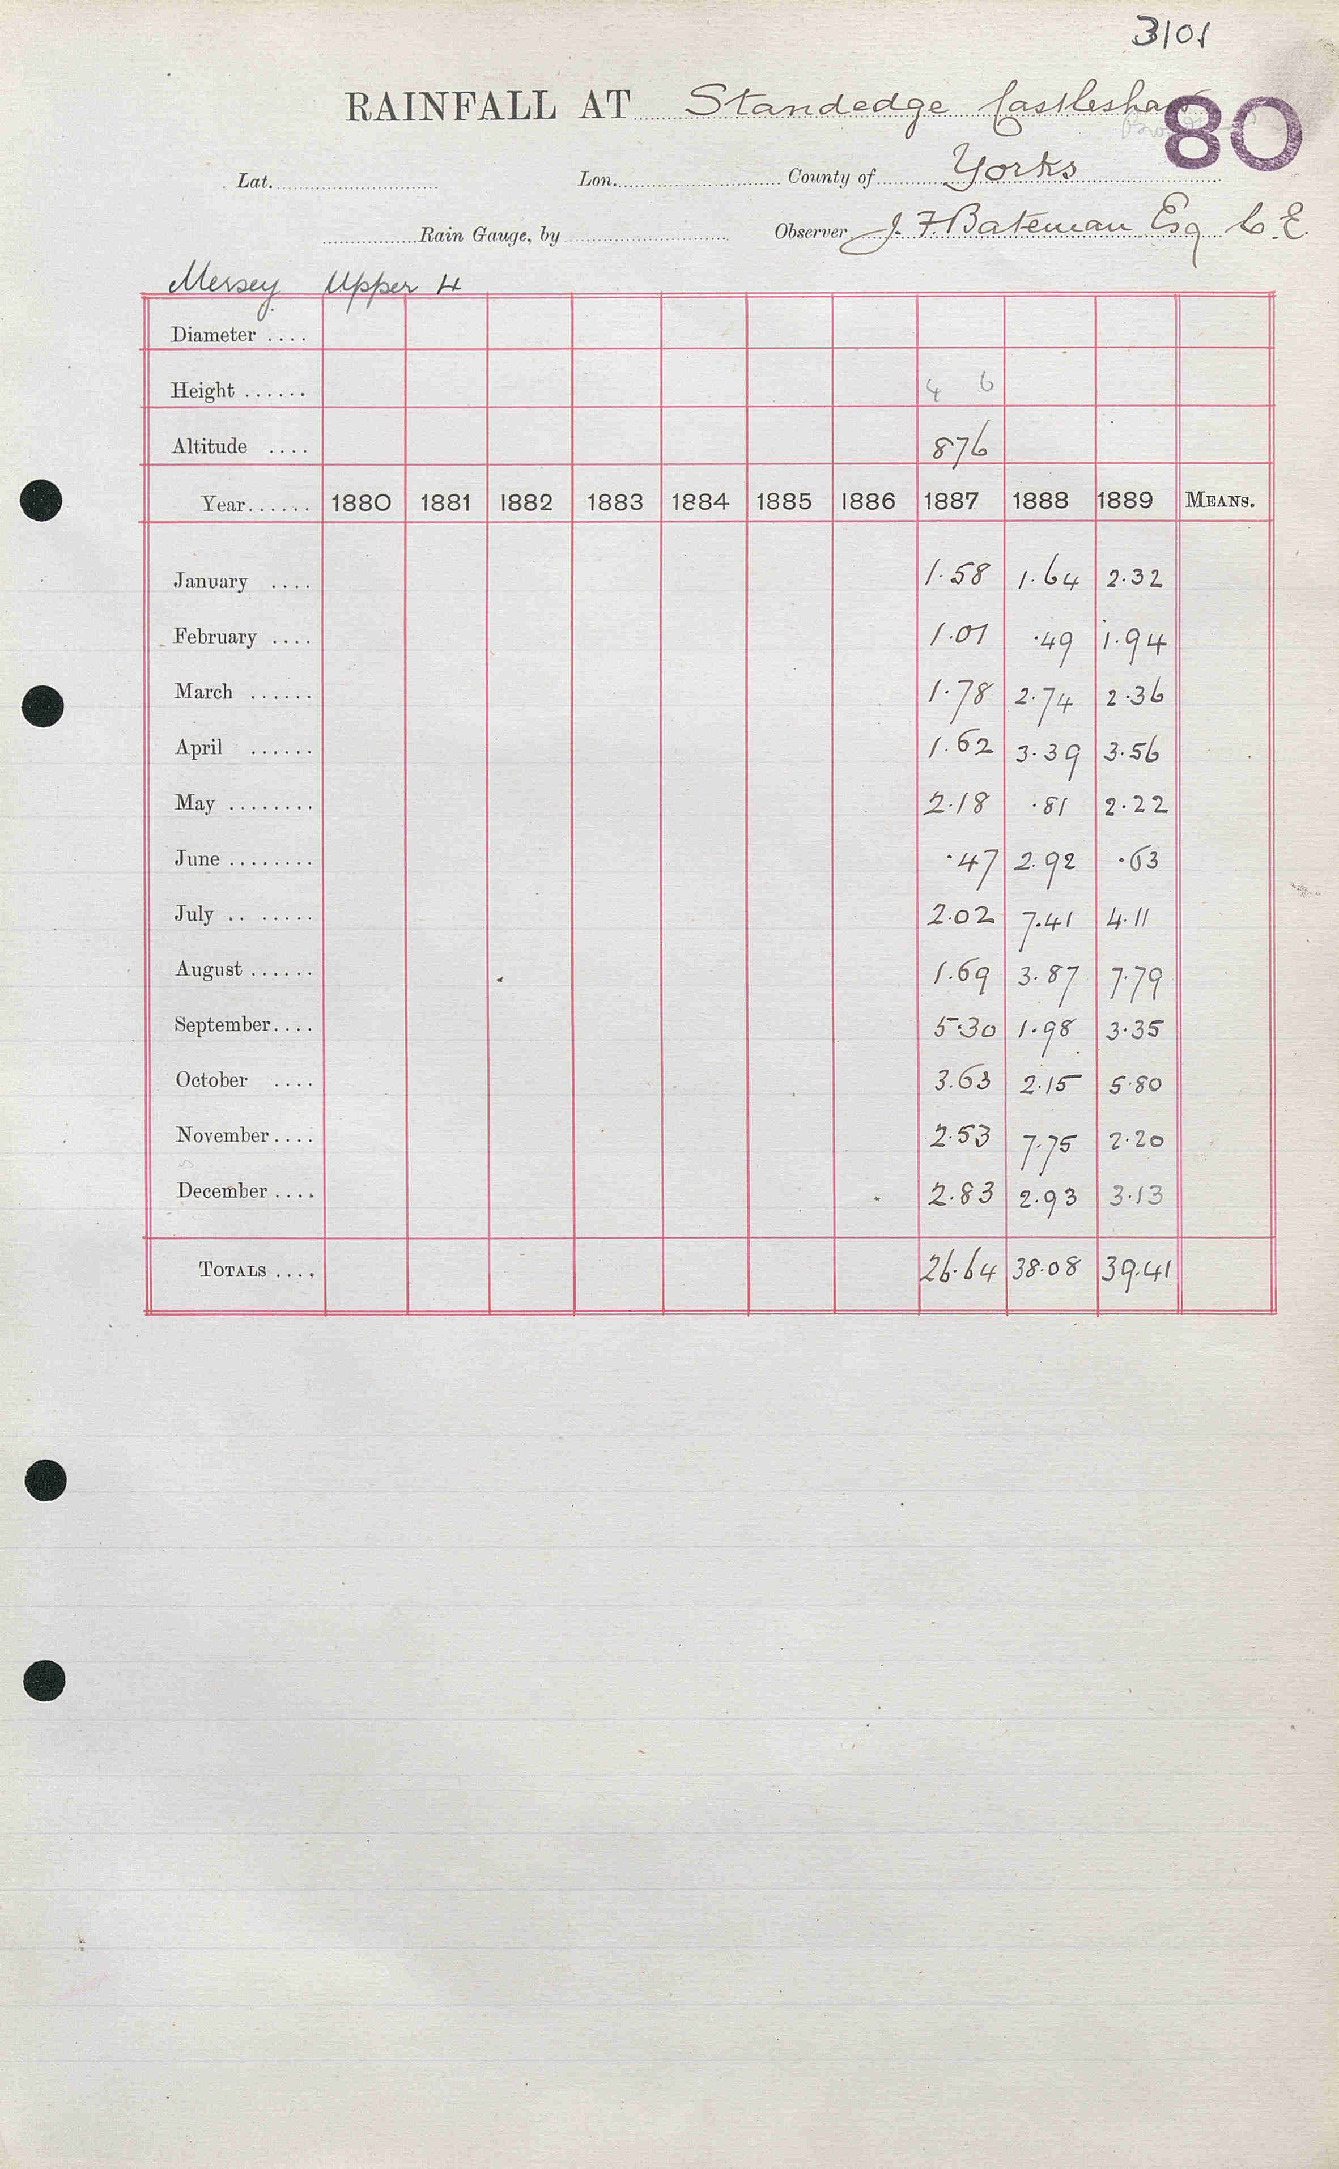 3101
RAINFALL AT Standedge Castleshaw
80
Lat. Lon. County of Yorks
Rain Gauge, by Observer J. F Bateman Esq C. E
Mersey Upper 4
Diameter ....
Height ...... 4 6
Altitude .... 876
Year...... 1880 1881 1882 1883 1884 1885 1886 1887 1888 1889 MEANS.
January .... 1.58 1.64 2.32
February .... 1.01 .49 1.94
March ...... 1.78 2.74 2.36
April ...... 1.62 3.39 3.56
May ........ 2.18 .81 2.22
June ........ .47 2.92 .63
July .. ...... 2.02 7.41 4.11
August ...... 1.69 3.87 7.79
September.... 5.30 1.98 3.35
October .... 3.63 2.15 5.80
November.... 2.53 7.75 2.20
December .... 2.83 2.93 3.13
TOTALS .... 26.64 38.08 39.41